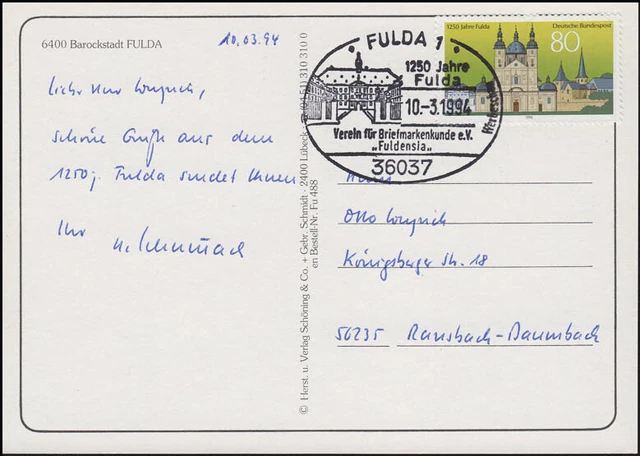 6400 Barockstadt FULDA
10.03.94
schöne Grüße aus dem
1250j. Fulda sendet Ihnen
Ihr
© Herst. u. Verlag Schöning & Co. + Gebr. Schmidt · 2400 Lübeck
310 310 0
en Bestell-Nr. Fu 488
FULDA 1
1250 Jahre
Fulda
10.-3.1994
Verein für Briefmarkenkunde e.V.
„Fuldensia"
36037
1250 Jahre Fulda
Deutsche Bundespost
80
Herrn
Otto
Königsberger Str. 18
56235 Ransbach-Baumbach